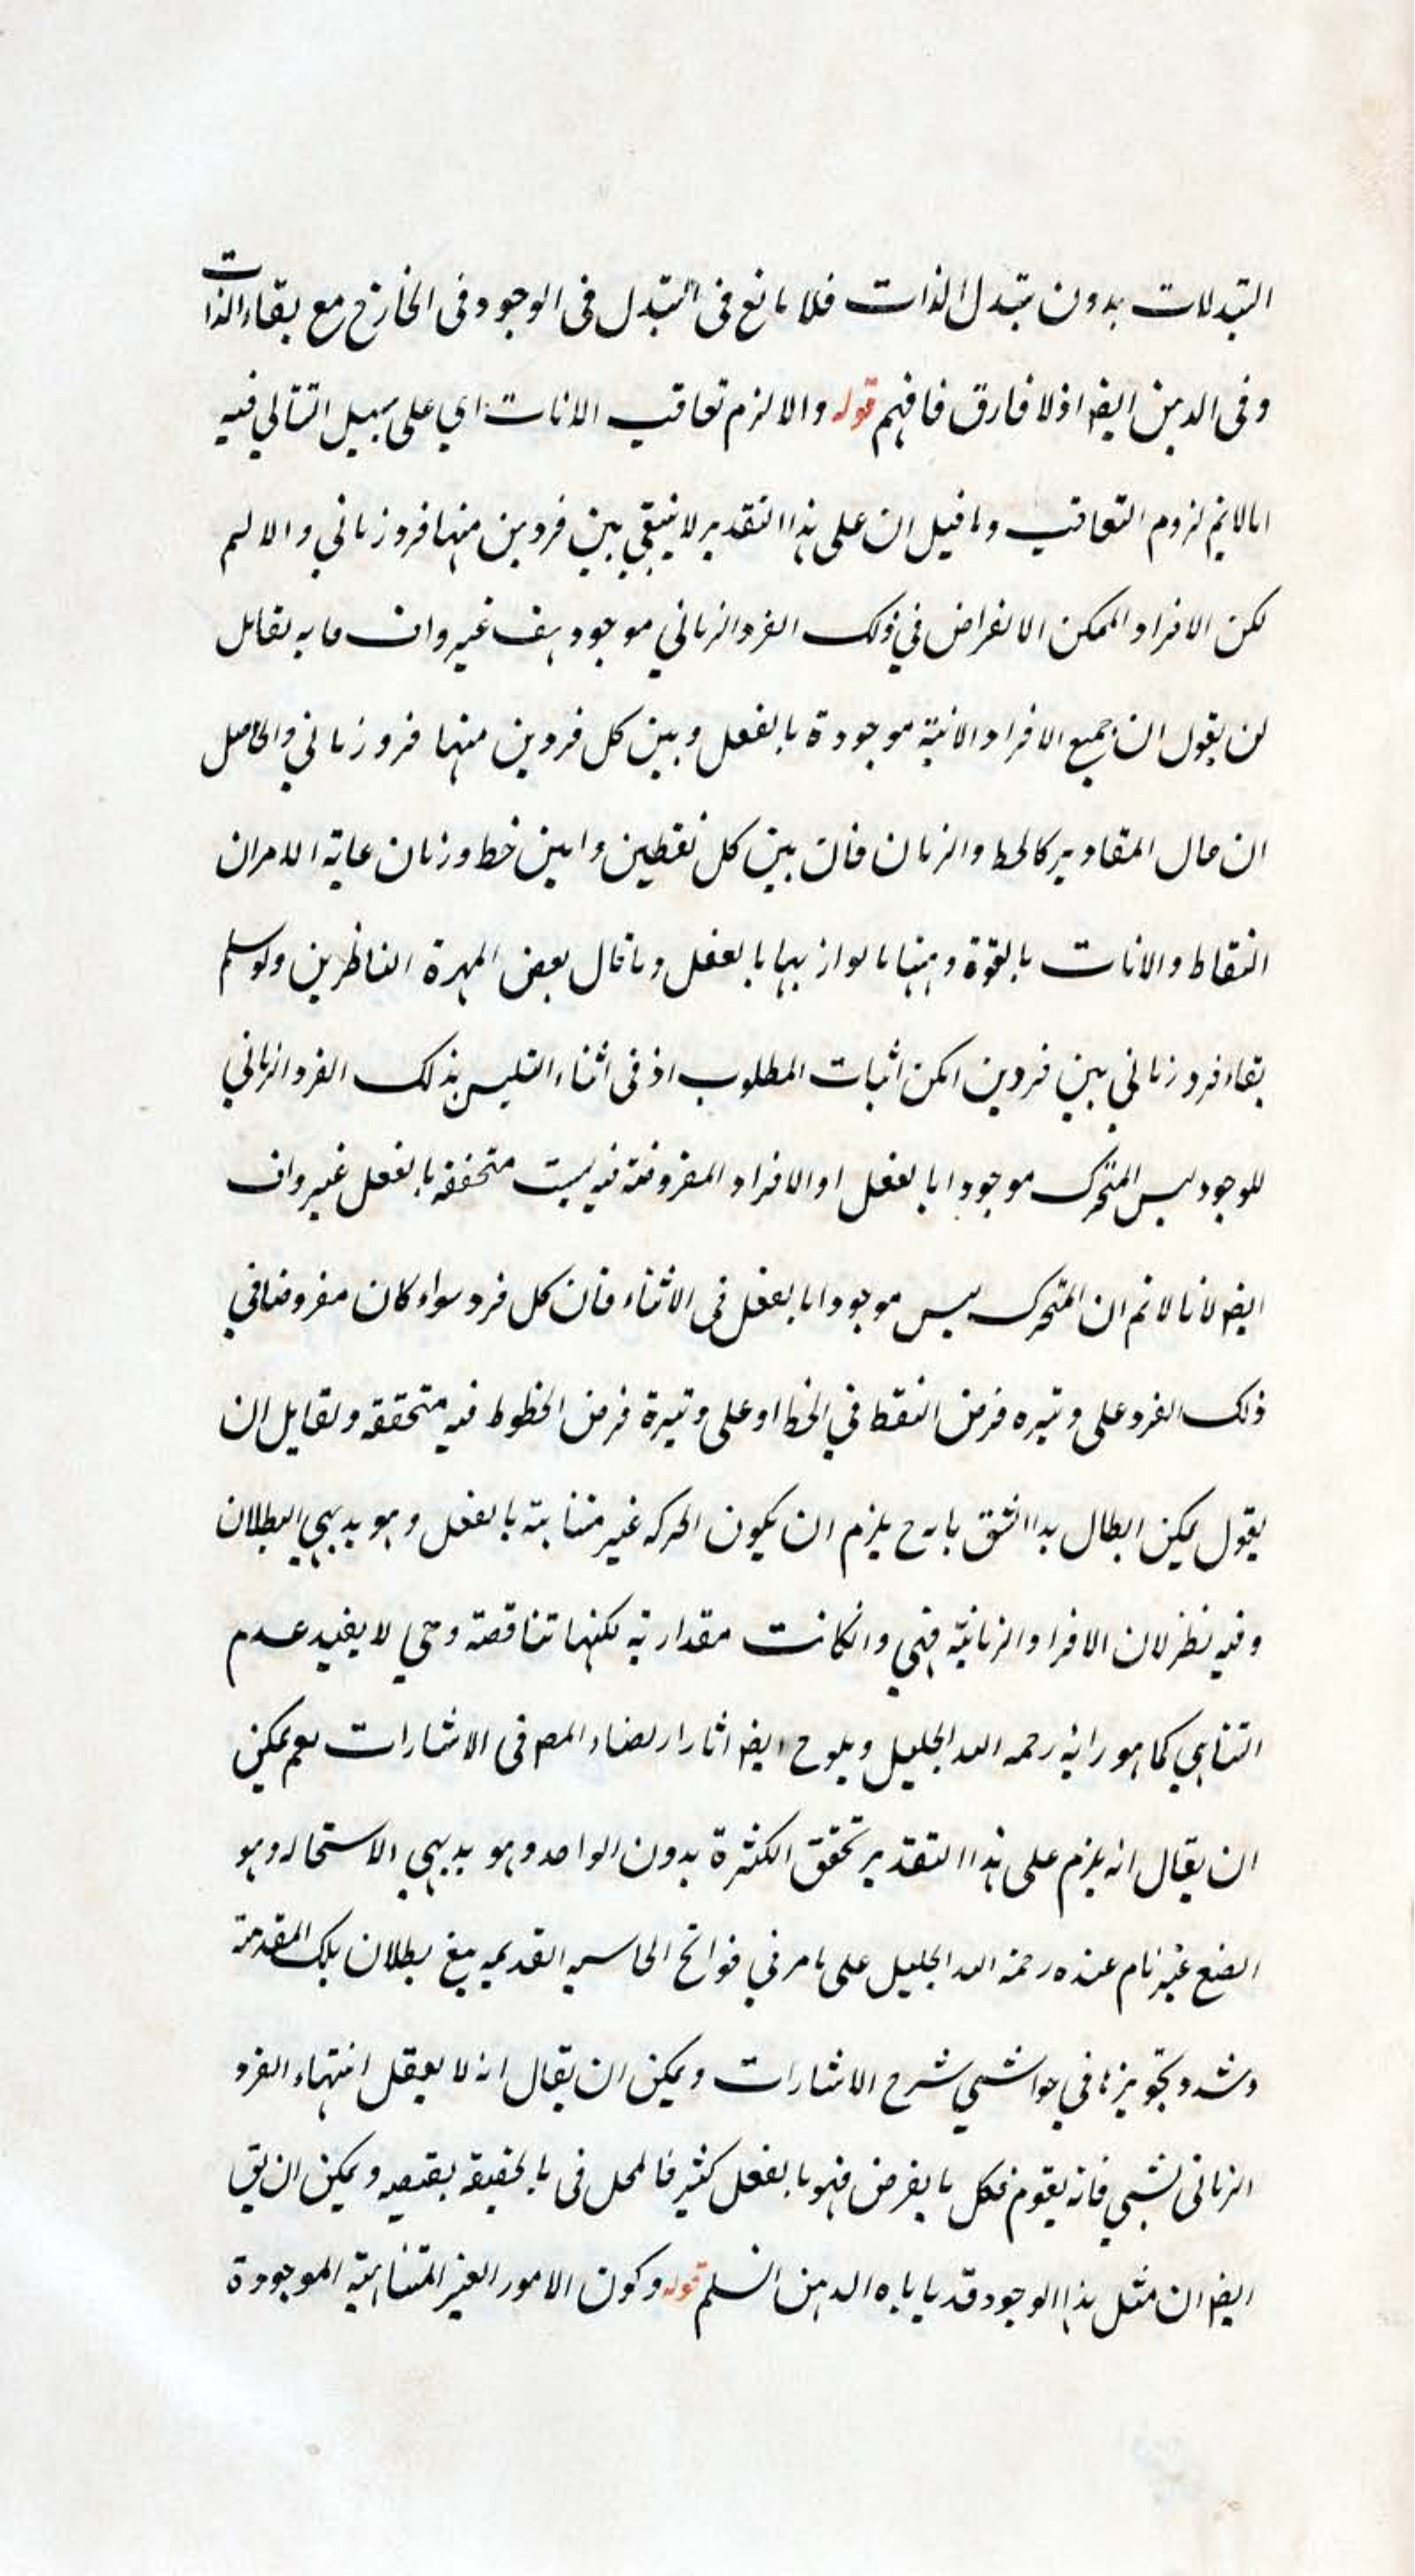 التبدلات بدون تبدل الذات فلا مانع فى التبدل فى الوجود فى الخارج مع بقاء الذات
وفى الذهن ايضا اذ لا فارق فافهم قوله والا لزم تعاقب الانات اي على سبيل التتالي فيه
انا لا نم لزوم التعاقب وما قيل ان على هذا التقدير لا يبقى بين فردين منها فرد زماني والا لم
تكن الافراد الممكن الانفراض في ذلك الفرد الزماني موجود هف غير واف ما به لقائل
لن يقول ان جميع الافراد الانية موجودة بالفعل وبين كل فردين منها فرد زماني والحاصل
ان حال المقادير كالخط والزمان فان بين كل نقطين وانين خط وزمان غاية الامر ان
النقاط والانات بالقوة وههنا ما يوازيها بالفعل وما قال بعض المهرة الناظرين ولو سلم
بقاء فرد زماني بين فردين امكن اثبات المطلوب اذ فى اثناء التلبس بذلك الفرد الزماني
للوجود ليس المتحرك موجودا بالفعل او الافراد المفروضة فيه ليست متحققه بالفعل غير واف
ايضا لانا لا نم ان المتحرك ليس موجودا بالفعل فى الاثناء فان كل فرد سواء كان مفروضا في
ذلك الفرد على وتيره فرض النقط في الخط او على وتيرة فرض الخطوط فيه متحققه ولقايل ان
يقول يمكن ابطال هذا الشق بانه ح يلزم ان يكون الحركه غير متناهية بالفعل وهو بديهي البطلان
وفيه نظر لان الافراد الزمانية فهي وان كانت مقدارية لكنها متناقصة وهي لا يفيد عدم
التناهي كما هو رائه رحمه الله الجليل ويلوح ايضا اثار ارتضاء المص فى الاشارات نعم يمكن
ان يقال انه يلزم على هذا التقدير تحقق الكثرة بدون الواحد وهو بديهي الاستحاله وهو
ايضا غير تام عنده رحمة الله الجليل على ما مر في فواتح الحاشيه القديمه مع بطلان تلك المقدمة
وشدد تجويزها في حواشي شرح الاشارات ويمكن ان يقال انه لا يعقل انتهاء الفرد
الزمانى لشي فانه يقوم فكل ما يفرض فهو بالفعل كثير فالمحل فى بالحقيقه ويمكن ان يق
ايضا ان مثل هذا الوجود قد يا باه الذهن السلم قوله وكون الامور الغير المتناهية الموجودة